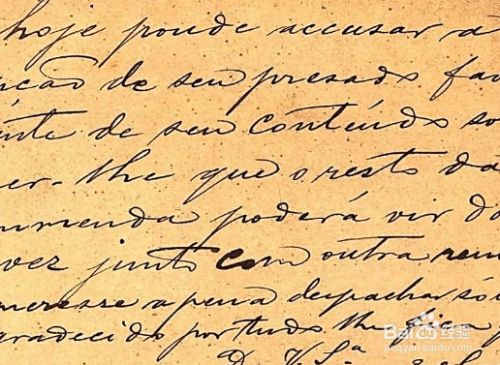 hoje poude accusar a
cação de seu presado fac
nte de seu Contéudo so
er-lhe que o resto da
mmenda poderá vir de
vez junto com outra rem
meresse a pena despachar só
gradecido por tudo lhe fica p
D. V. S.ª
Baidu 经验
jingyan.baidu.com